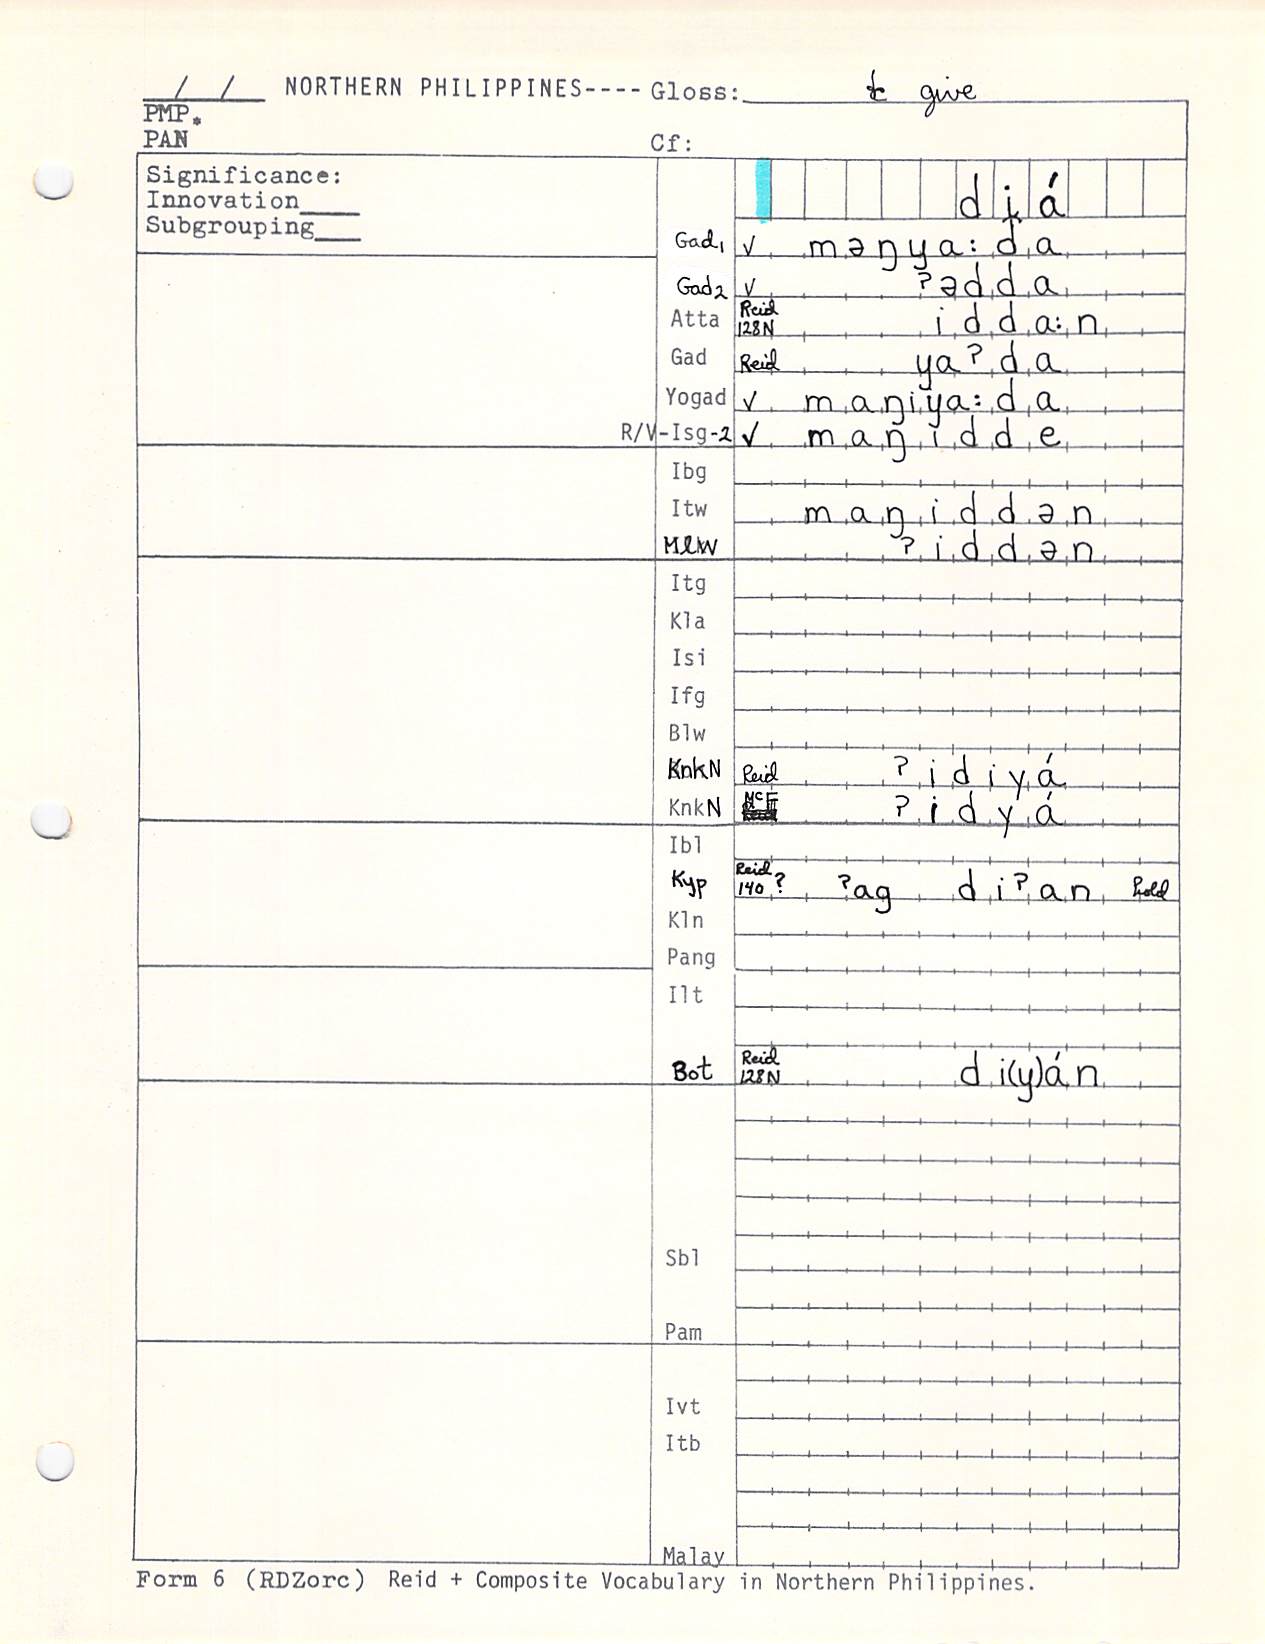 __/__/__ NORTHERN PHILIPPINES---- Gloss: to give
PMP.
PAN Cf:
Significance:
Innovation____
Subgrouping___
d i̯ á
Gad1 ✓ məŋya:da
Gad2 ✓ ʔədda
Atta Reid 128N idda:n
Gad Reid yaʔda
Yogad ✓ maŋiya:da
R/V-Isg-2 ✓ maŋidde
Ibg
Itw maŋiddən
Mlw ʔiddən
Itg
Kla
Isi
Ifg
Blw
KnkN Reid ʔidiyá
KnkN McF ʔidyá
Ibl
Kyp Reid 140? ʔag diʔan hold
Kln
Pang
Ilt
Bot Reid 128N di(y)án
Sbl
Pam
Ivt
Itb
Malay
Form 6 (RDZorc) Reid + Composite Vocabulary in Northern Philippines.